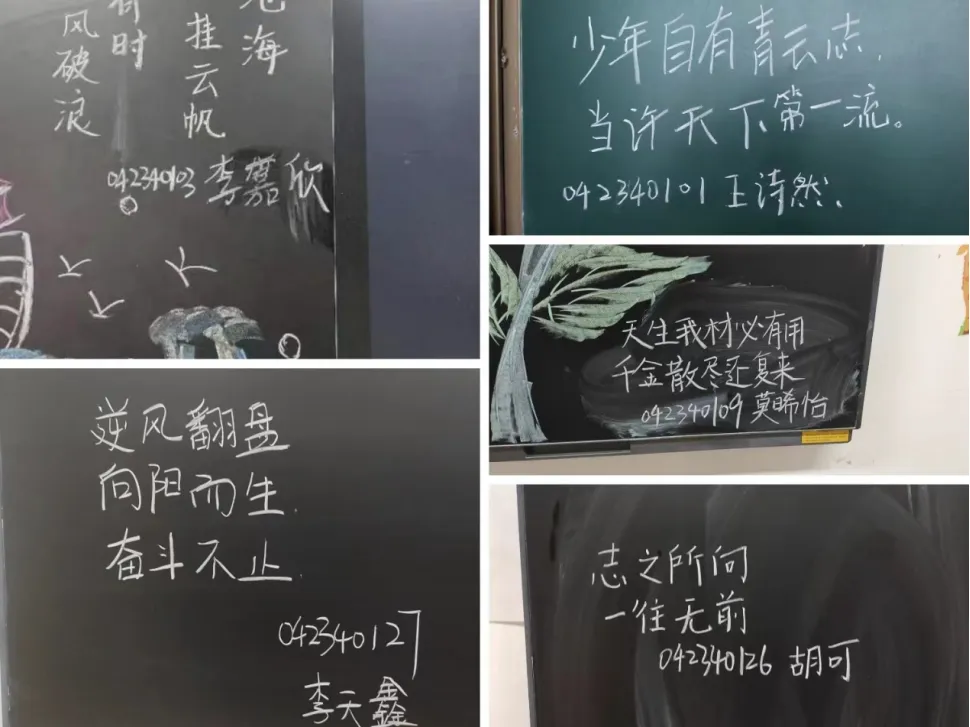 风破浪
有时
挂云帆
沧海
042340103 李嘉欣
少年自有青云志,
当许天下第一流。
042340101 王诗然
天生我材必有用
千金散尽还复来
042340109 莫晞怡
逆风翻盘
向阳而生.
奋斗不止.
042340127
李天鑫
志之所向
一往无前
042340126 胡可